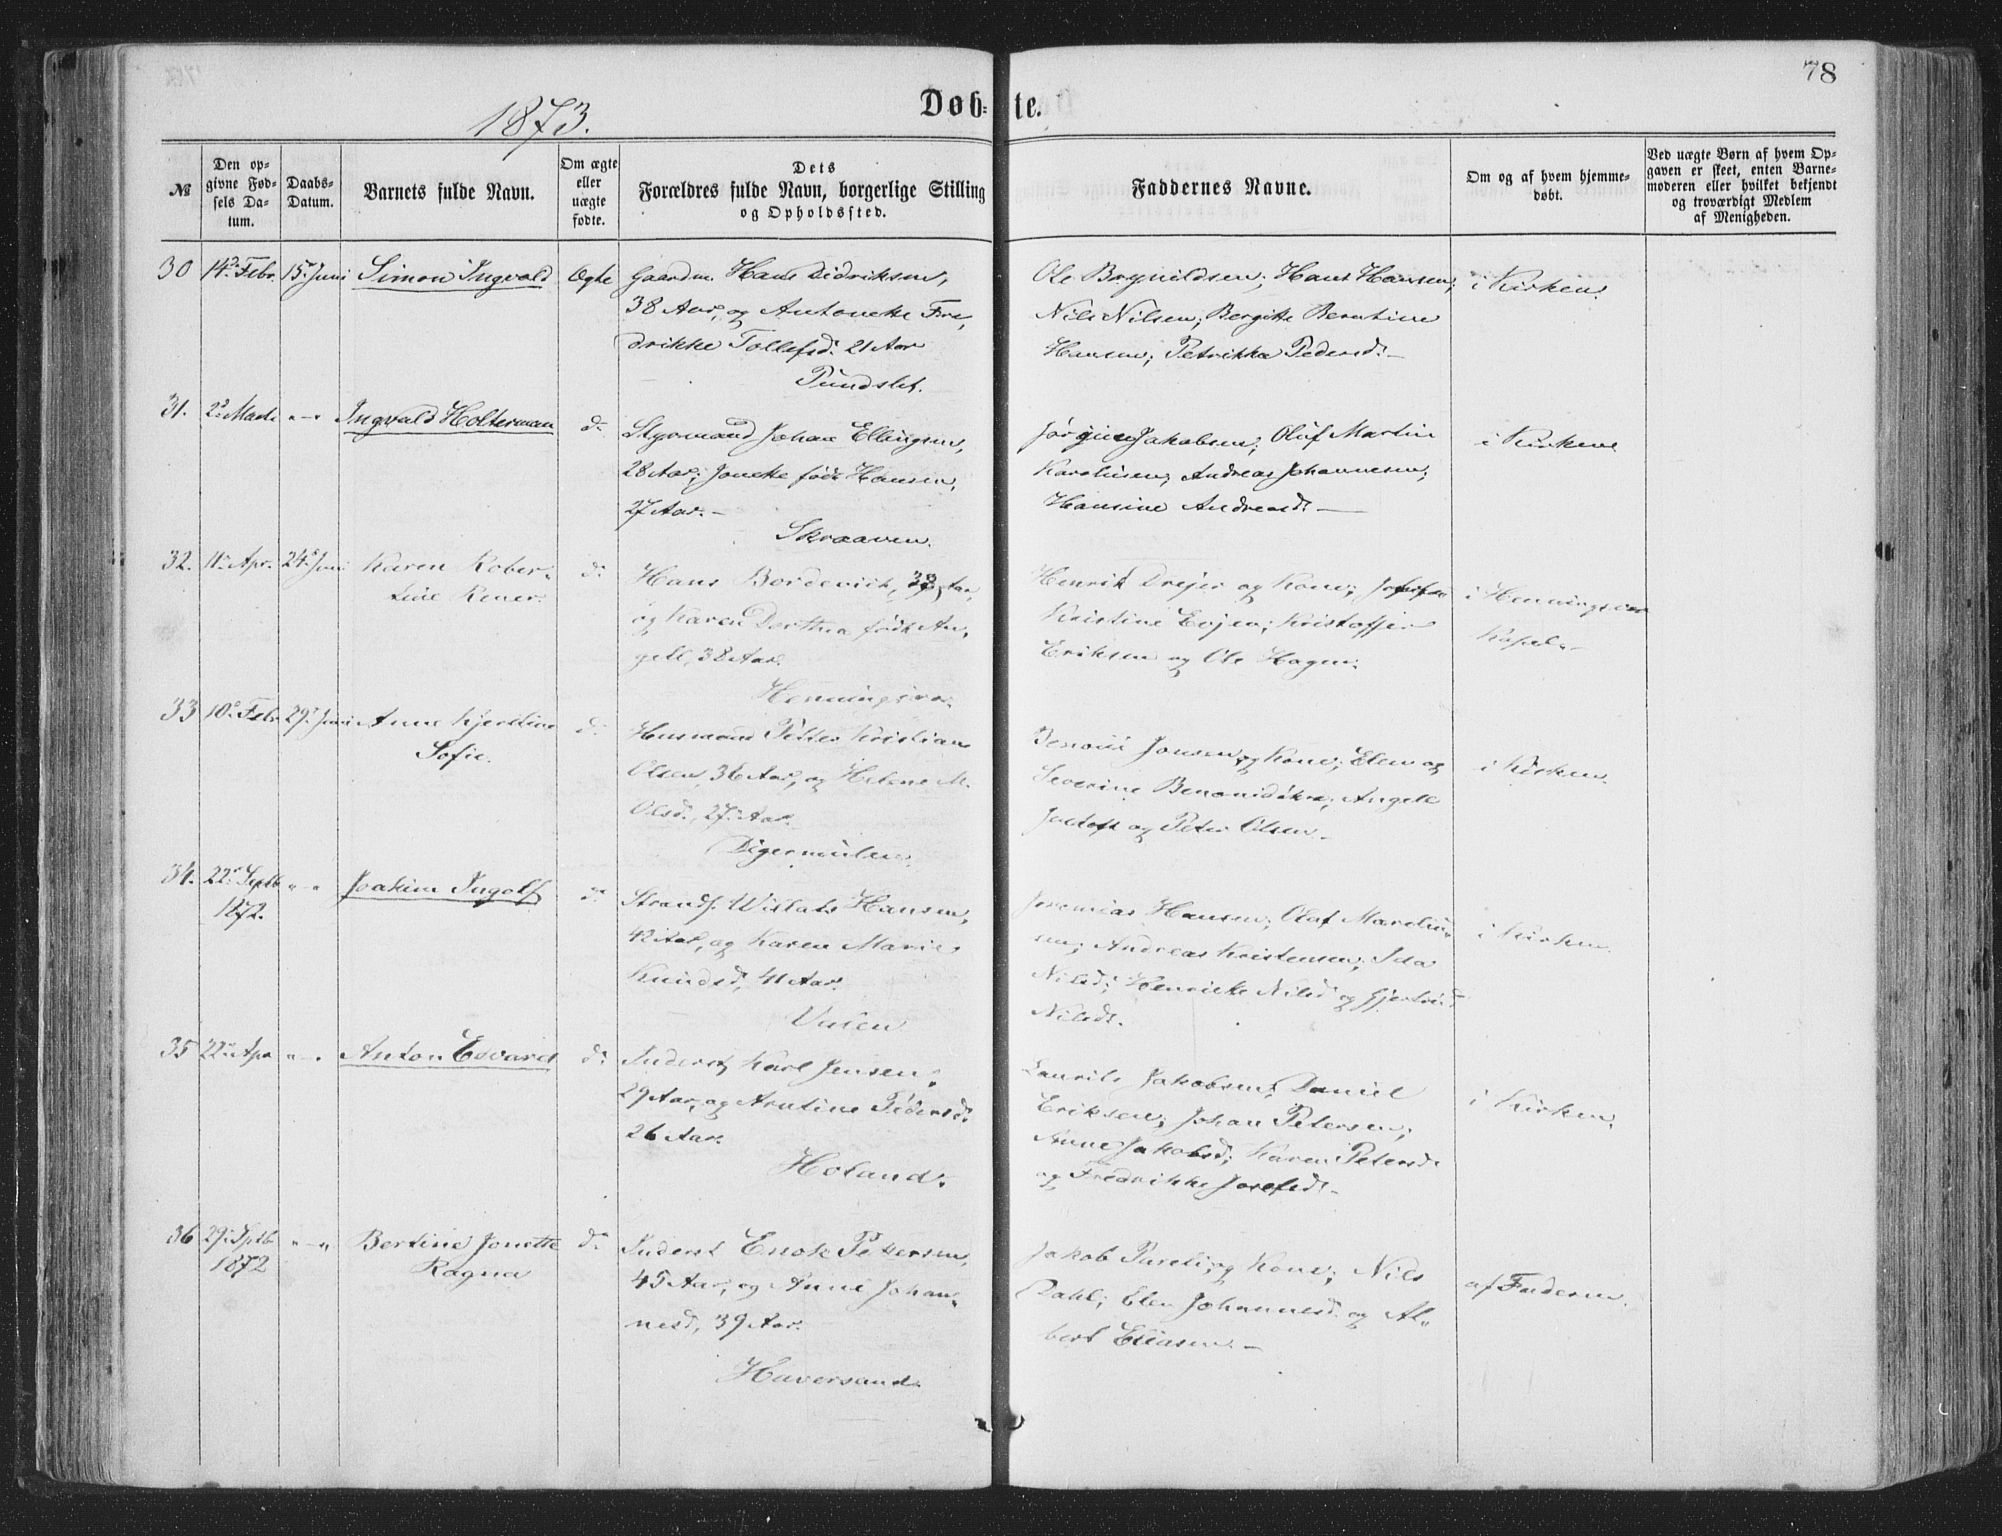 78
1873.
Døb-te.
№
Den op-
givne Fød-
sels Da-
tum.
Daabs-
Datum.
Barnets fulde Navn.
Om ægte
eller
uægte
fødte.
Dets
Forældres fulde Navn, borgerlige Stilling
og Opholdssted.
Faddernes Navne.
Om og af hvem hjemme-
døbt.
Ved uægte Børn af hvem Op-
gaven er skeet, enten Barne-
moderen eller hvilket bekjendt
og troværdigt Medlem
af Menigheden.
30 14de Febr. 15de Juni Simon Ingvald Ægte
Gaardm. Hans Didriksen,
38 Aar, og Antonette Fre-
drikke Tollefsd. 21 Aar
Pundslet.
Ole Brynildsen; Hans Hansen;
Nils Nilsen; Bergitte Berntine
Hansen; Petrikka Pedersd.
i Kirken.
31. 2den Marts "-" Ingvald Holterman do
Styrmand Johan Ellingsen,
28 Aar; Jonette født Hansen,
27 Aar.
Skraaven.
Jørgine Jakobsen; Oluf Martin
Karolusen; Andreas Johannesen;
Hansine Andreasd.
i Kirken
32. 11te Apr. 24de Juni Karen Rober-
tine Rener. do
Hans Bordevich, 38 Aar,
og Karen Dorthea født An-
gell, 38 Aar.
Henningsvær.
Henrik Drejer og Kone;
Kristine Evjen; Kristoffer
Eriksen og Ole Hagen.
i Henningsvær
Kapel.
33 10de Febr. 29de Juni Anne Kjerstine
Sofie. do
Husmand Petter Kristian
Olsen, 36 Aar, og Helene M.
Olsd., 27 Aar.
Digermulen.
Benoni Jonsen og Kone; Elen og
Severine Benonidøtre; Angell
Jentoft og Peter Olsen.
i Kirken.
34. 22de Septb
1872. "-" Joakim Ingolf do
Strands. Hansen,
42 Aar, og Karen Marie
Knudsd, 41 Aar.
Valen
Jeremias Hansen; Olaf Mareliu-
sen; Andreas Kristensen; Ida
Nilsd; Henrikke Nilsd og Gjertrud
Nilsd.
i Kirken.
35 22de Apr "-" Anton Edvard do
Inderst Karl Jensen,
29 Aar, og Arntine Pedersd.
26 Aar.
Holand.
Laurits Jakobsen; Daniel
Eriksen; Johan Petersen;
Anne Jakobsd; Karen Petersd.
og Fredrikke Josefsd.
i Kirken.
36 29de Septb
1872 "-" Bertine Jonette
Ragna do
Inderst Enok Pettersen,
45 Aar, og Anne Johan-
nesd, 39 Aar.
Haversand.
Jakob Pareli og Kone; Nils
Dahl; Elen Johannesd. og Al-
bert Eliasen.
af Faderen.